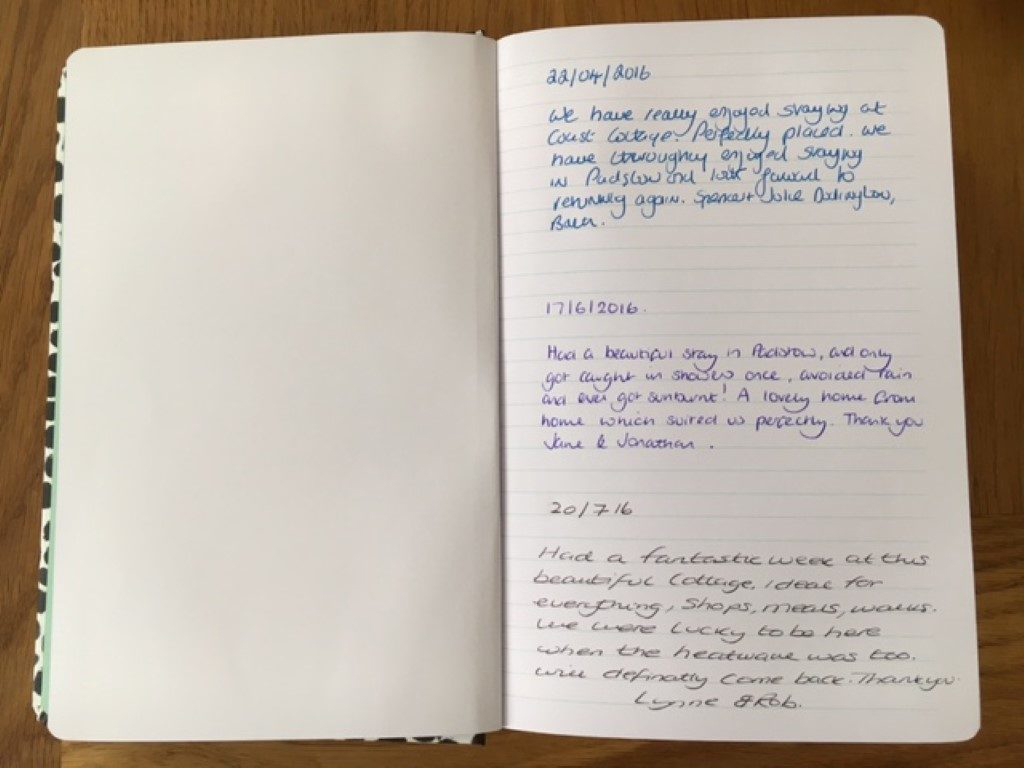 22/04/2016
We have really enjoyed staying at
Coast Cottage. Perfectly placed. We
have thoroughly enjoyed staying
in Padstow and look forward to
returning again. Spencer + Julie
17/6/2016.
Had a beautiful stay in Padstow, and only
got caught in showers once, avoided rain
and even got sunburnt! A lovely home from
home which suited us perfectly. Thank you
Jane & Jonathan.
20/7 16
Had a fantastic week at this
beautiful Cottage. Ideal for
everything, shops, meals, walks.
We were lucky to be here
when the heatwave was too.
will definatly come back. Thankyou
Lynne & Rob.